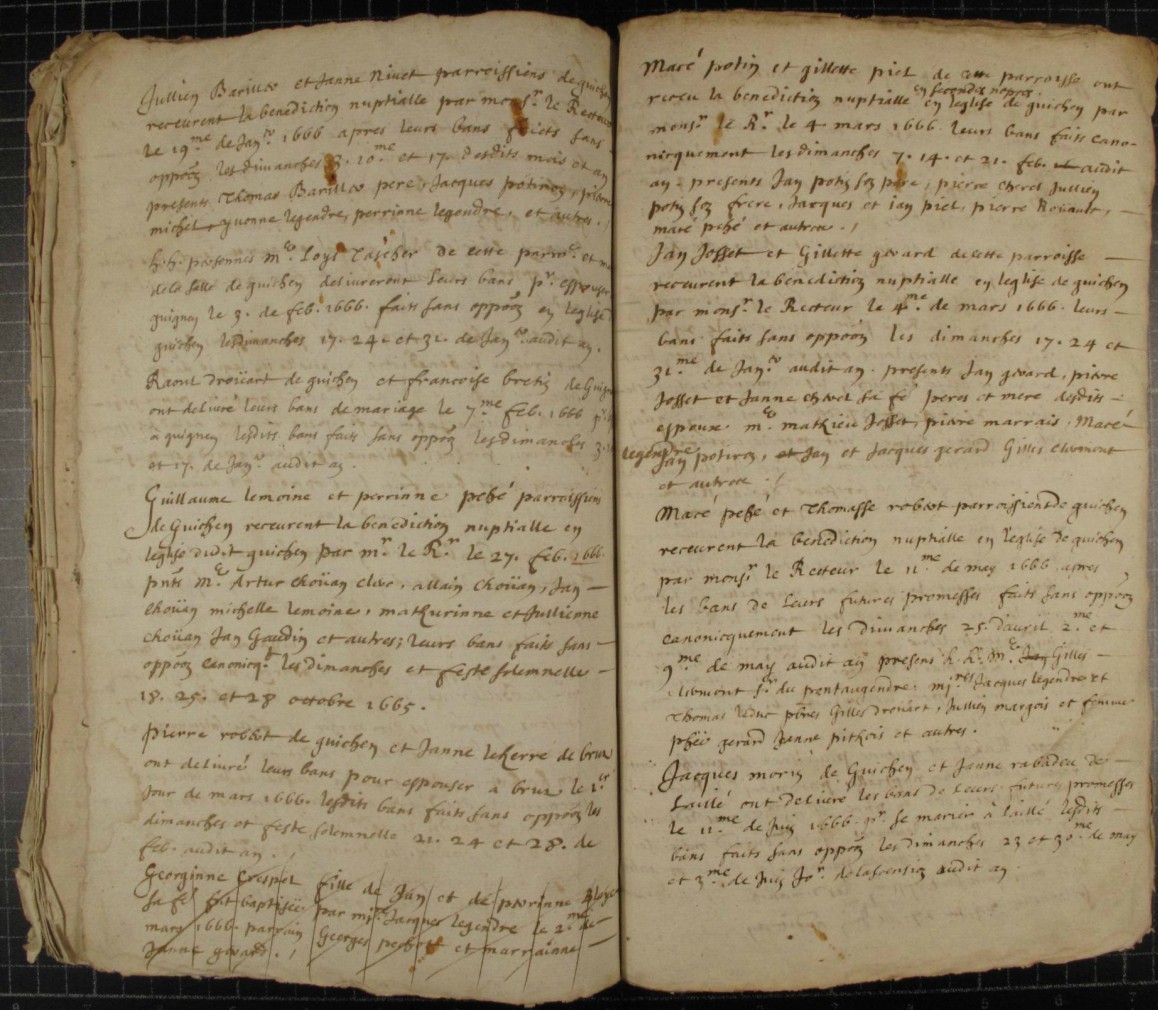 Jullien Barillet et Janne Nivet parroissiens de guichen
receurent la benediction nuptialle par monsr. le Recteur
le 19me de Janv 1666 apres leurs bans faicts sans
oppoon les dimanches 3. 10.me et 17. desdits mois et an
presents Thomas Barillet pere, Jacques potiron, pierre
michel, yvonne legendre, perrinne legendre, et autres.
personnes Loys Tascher de cette parrsse. et
de guichen delivrerent leurs bans pr. espouser
guignen le 3. de feb. 1666. faits sans oppoon en leglise
guichen les dimanches 17. 24. et 31. de Janv. audit an.
Raoul droüart de guichen et francoise bretin de Guignen
ont delivré leurs bans de mariage le 7.me feb. 1666
à guignen lesdits bans faits sans oppoon les dimanches 3.
et 17. de Janv. audit an.
Guillaume lemoine et perrinne pehé parroissiens
de Guichen receurent la benediction nuptialle en
leglise dudit guichen par mr. le Rr. le 27. feb. 1666.
pnts Me. Artur choüan allain choüan, Jan
choüan michelle lemoine, mathurinne et Jullienne
choüan Jan Gaudin et autres; leurs bans faits sans
oppoon canonicqt les dimanches et feste solemnelle
18. 25. et 28 octobre 1665.
Pierre robert de guichen et Janne leherre de bruz
ont delivré leurs bans pour espouser à bruz le 1.er
Jour de mars 1666. lesdits bans faits sans oppoon les
dimanches et feste solemnelle 21. 24 et 28. de
feb. audit an.
Georginne Crespel fille de Jan et de perrinne
sa fe fut baptisée par mire Jacques legendre le 2.me de
mars 1666. parrain Georges et marrainne
Janne gerard.
Macé potin et gillette piel de cette parroisse ont
en secondes nopces
receu la benediction nuptialle en leglise de guichen par
monsr. le Rr. le 4 mars 1666. leurs bans faits cano-
nicquement les dimanches 7. 14. et 21. feb. audit
an. presents Jan potin son pere, pierre cherel Jullien
potin son frere, Jacques et ian piel, pierre Roüault,
macé pehé et autres.
Jan Josset et Gillette gerard de cette parroisse
receurent la benediction nuptialle en leglise de guichen
par monsr. le Recteur le 4me. de mars 1666. leurs
bans faits sans oppoon les dimanches 17. 24 et
31.me de Janv. audit an. presents Jan gerard, pierre
Josset et Janne cherel sa fe peres et mere desdits
espoux. me. mathieu Josset, pierre marrais, Macé
legendre
Jan potiron, et Jan et Jacques gerard Gilles clermont
et autres.
Macé pehé et Thomasse robert parroissiens de guichen
receurent la benediction nuptialle en leglise de guichen
par monsr le Recteur le 11.me de may 1666 apres
les bans de leurs futures promesses faits sans oppoon
canonicquement les dimanches 25. davril, 2.me et
9.me de may audit an presens h. h. Me. Jan Gilles
clermont sr. du mires Jacques legendre et
Thomas leduc pbres Gilles droüart, Jullien margois et femme
gerard Janne pithois et autres.
Jacques morin de Guichen et Janne rabadeu de
Laillé ont delivré les bans de leurs futures promesses
le 11.me de Juin 1666. pr. se marier à laillé lesdits
bans faits sans oppoon les dimanches 23 et 30.me de may
et 3.me de Juin Jr. de lascension audit an